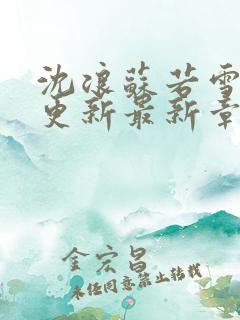 沈浪蘇若雪
更新最新章
金宏昌
未经同意禁止转载